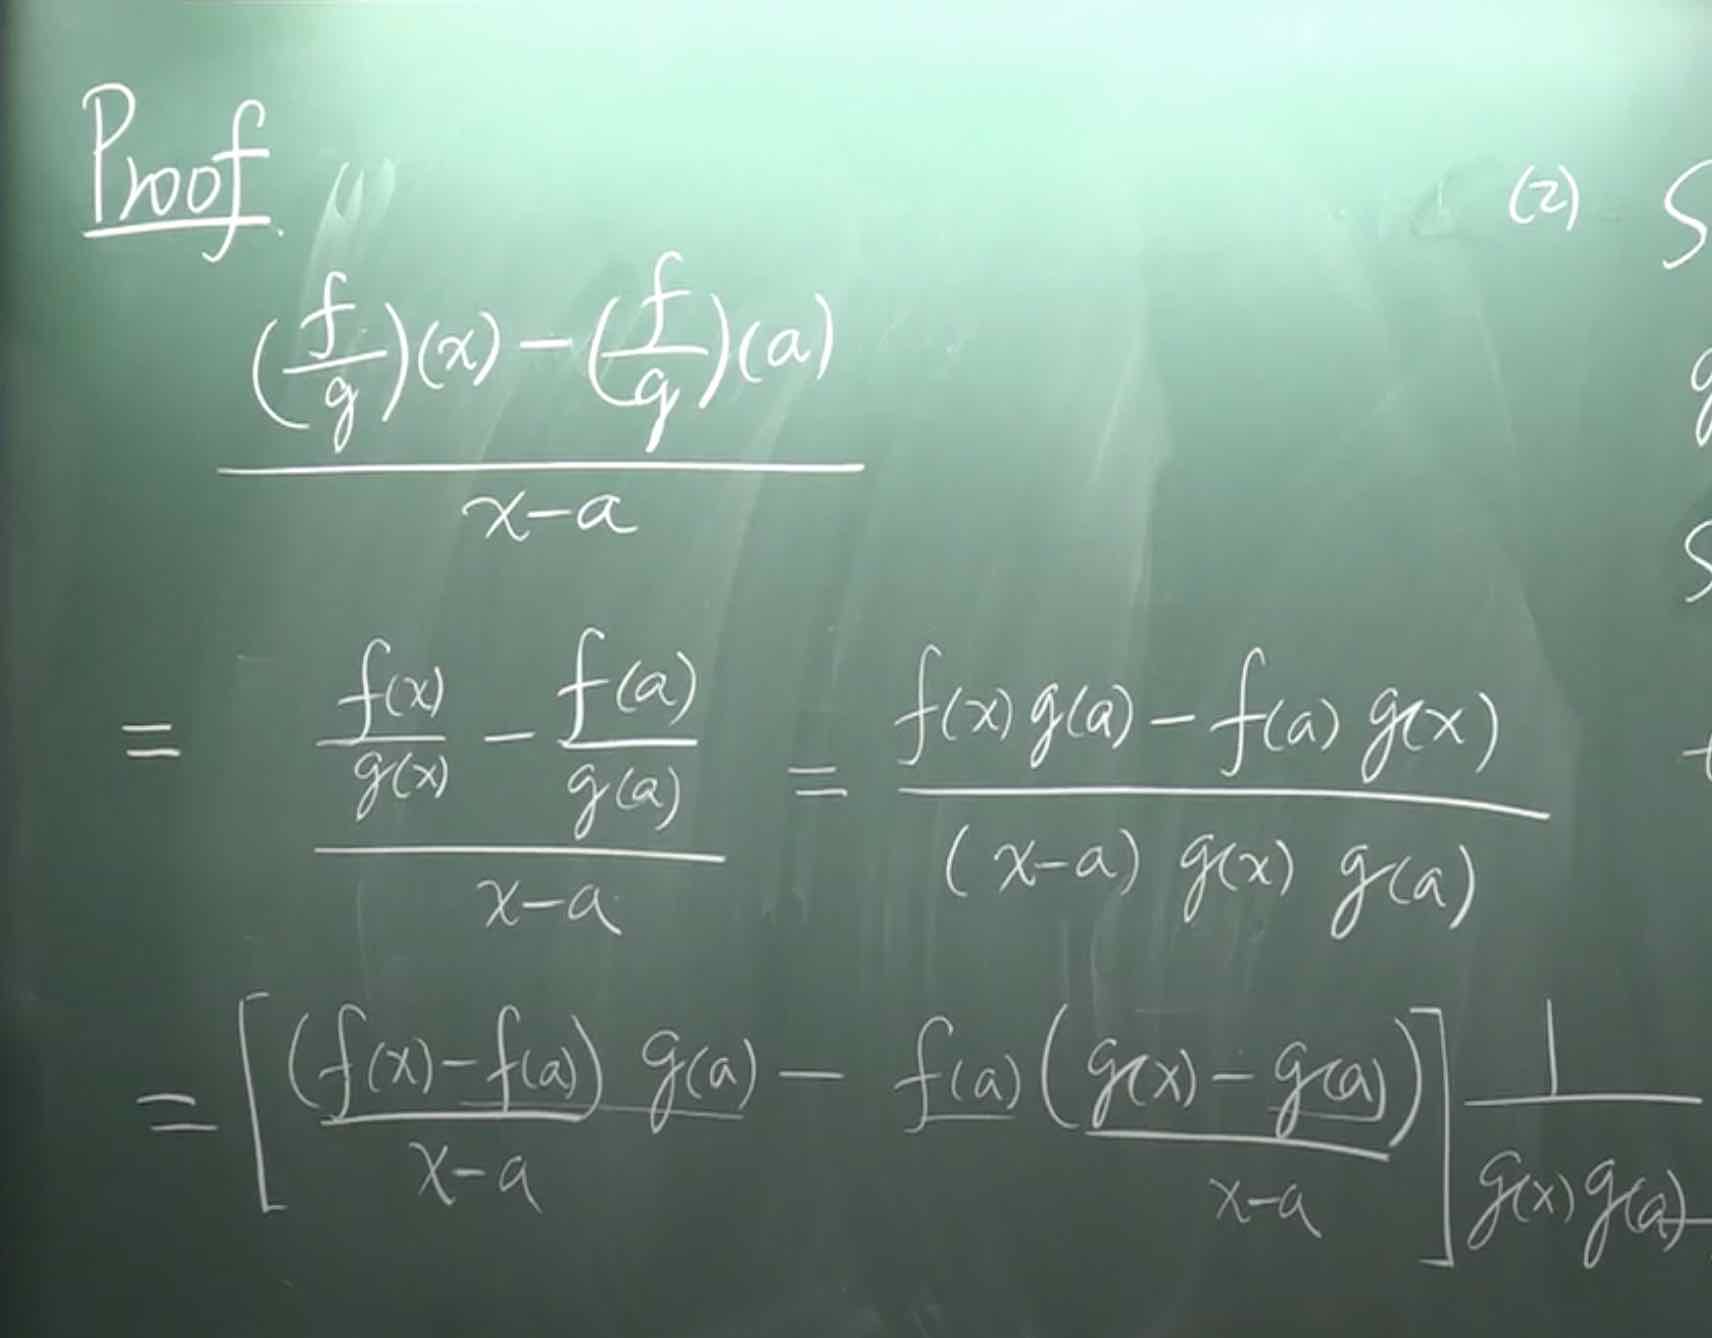 Proof.
(f/g)(x) - (f/g)(a)
x-a
= f(x)/g(x) - f(a)/g(a) = f(x) g(a) - f(a) g(x)
x-a (x-a) g(x) g(a)
= [ (f(x)-f(a)) g(a) - f(a) (g(x)-g(a)) ] 1
x-a x-a g(x) g(a)
(2) S